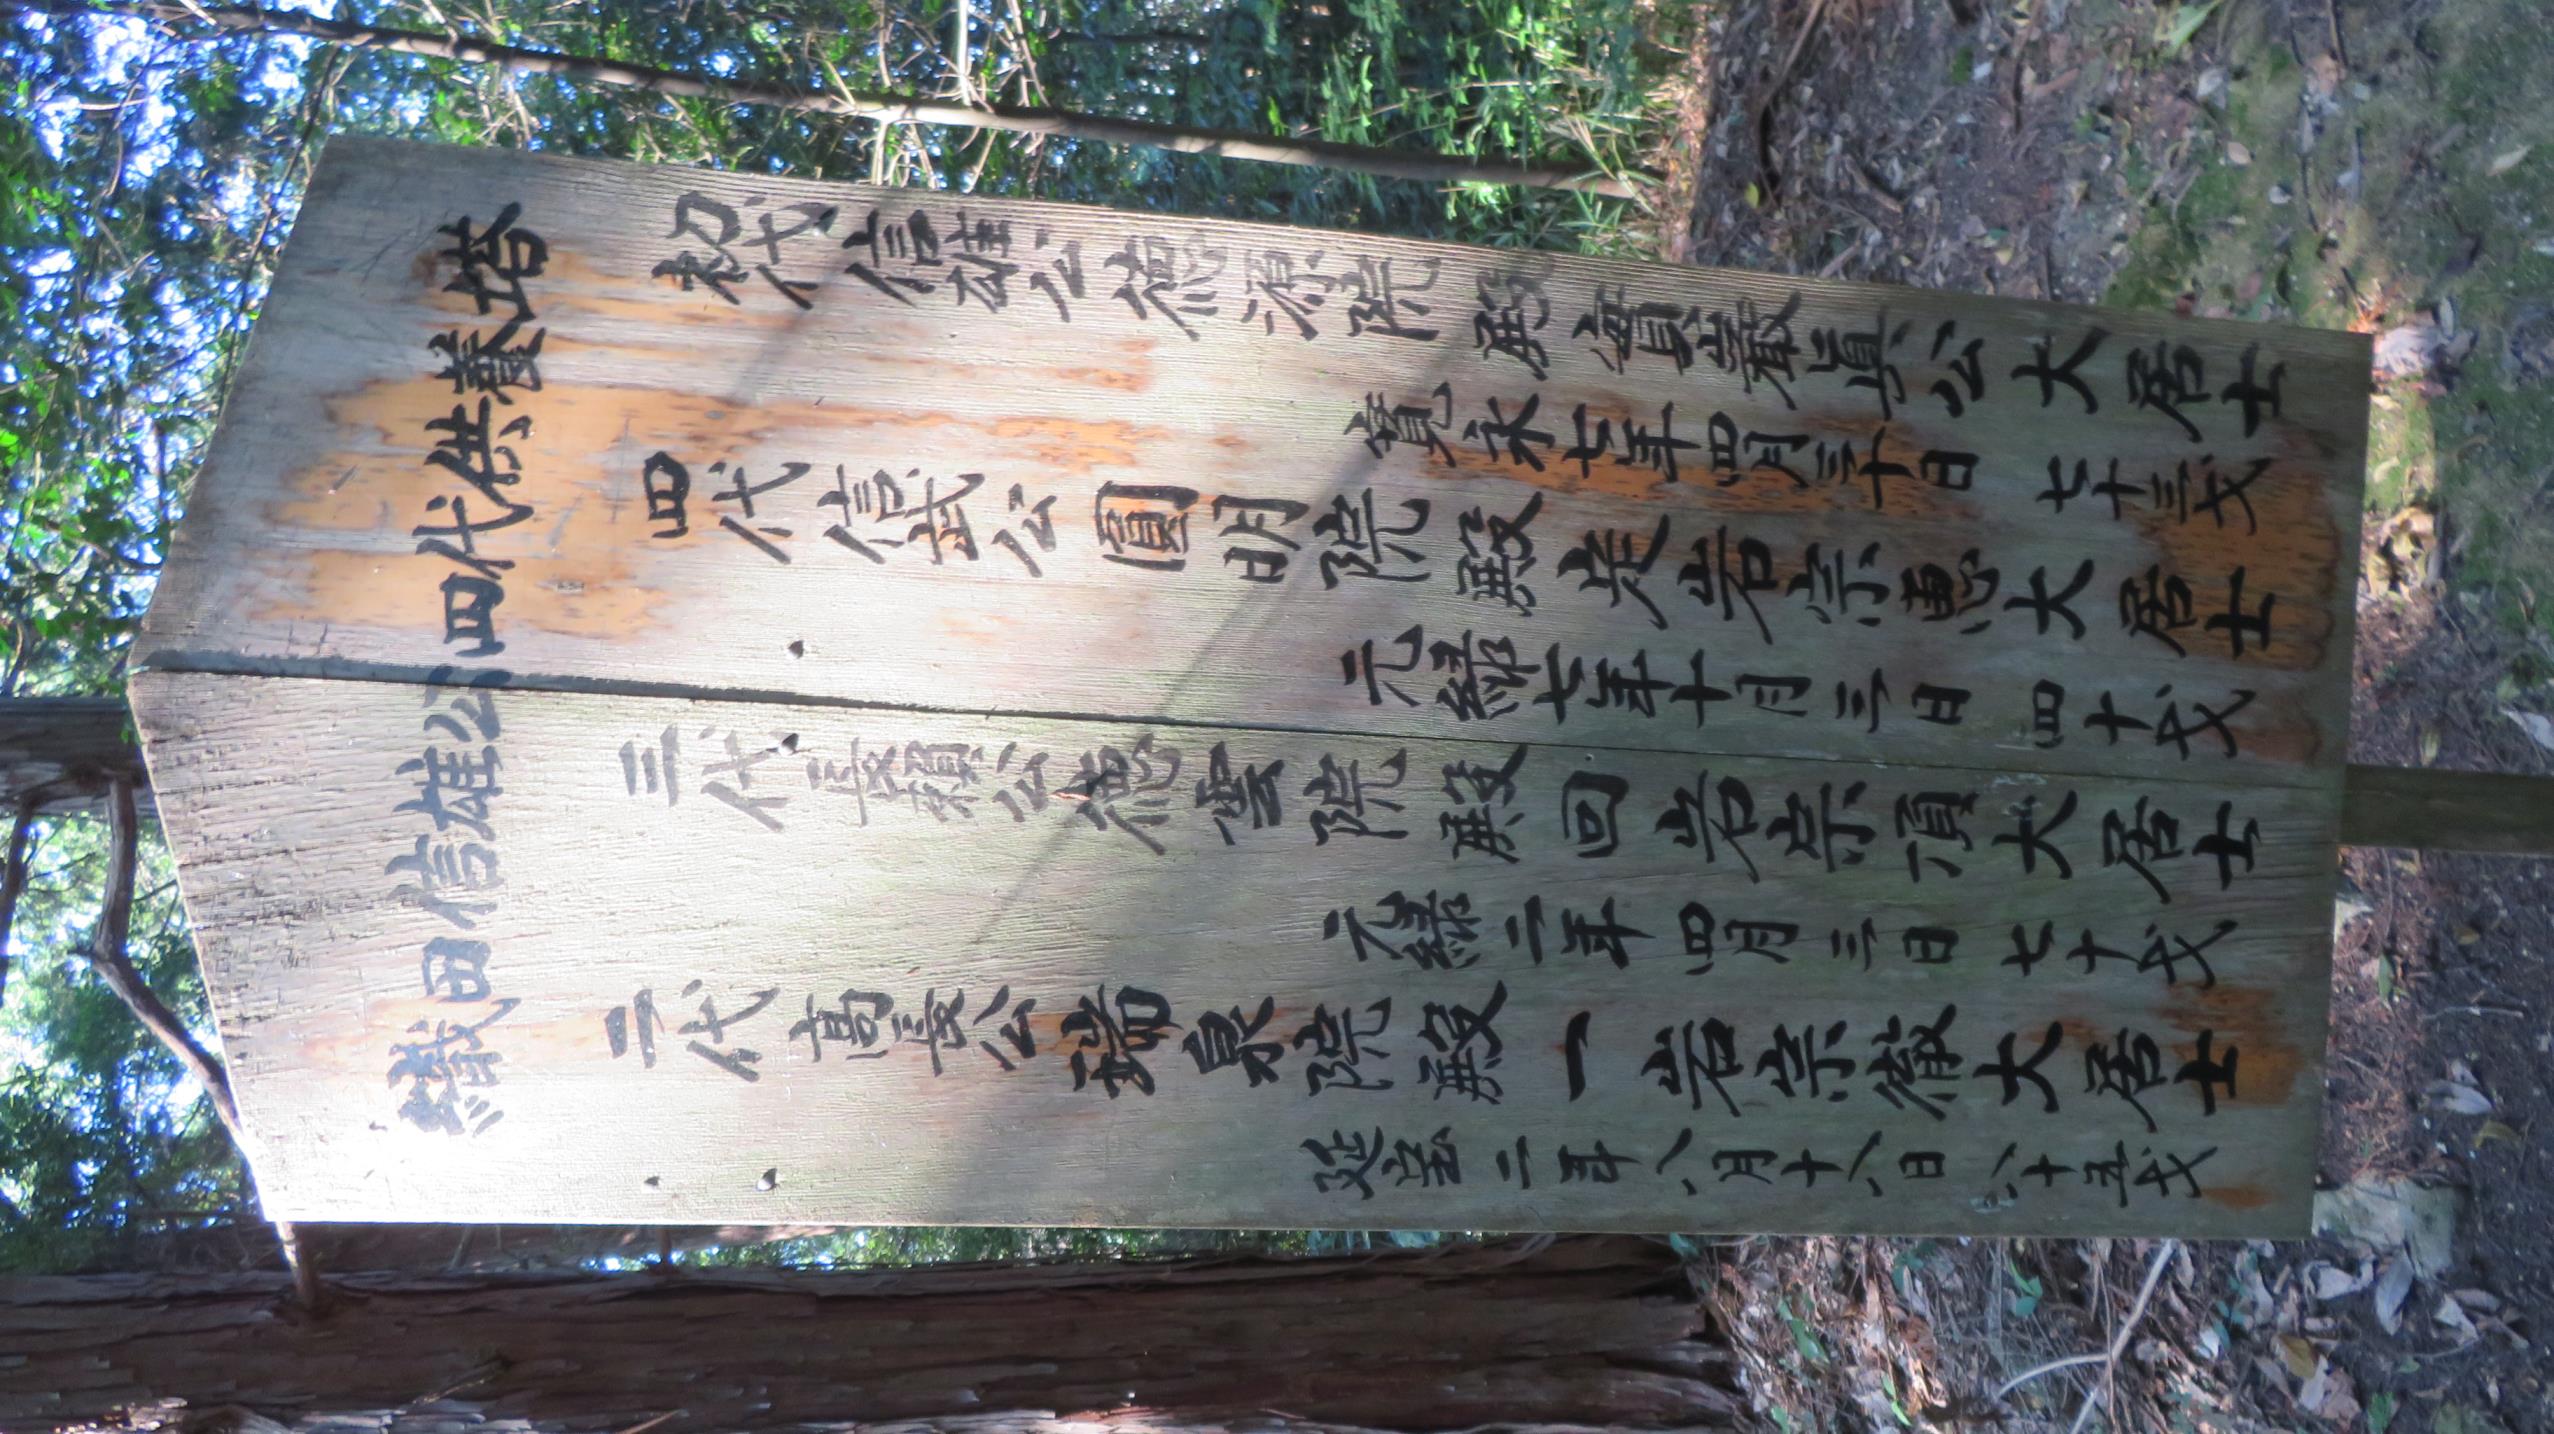 織田信雄公四代供養塔
初代信雄公徳源院殿實巌眞公大居士
寛永七年四月三十日 七十三才
四代信武公圓明院殿岩宗恵大居士
元禄七年十月三日 四十才
三代長頼公徳雲院殿回岩宗頂大居士
元禄二年四月三日七十才
二代高長公瑞泉院殿一岩宗徹大居士
延宝二年八月十八日 八十五才